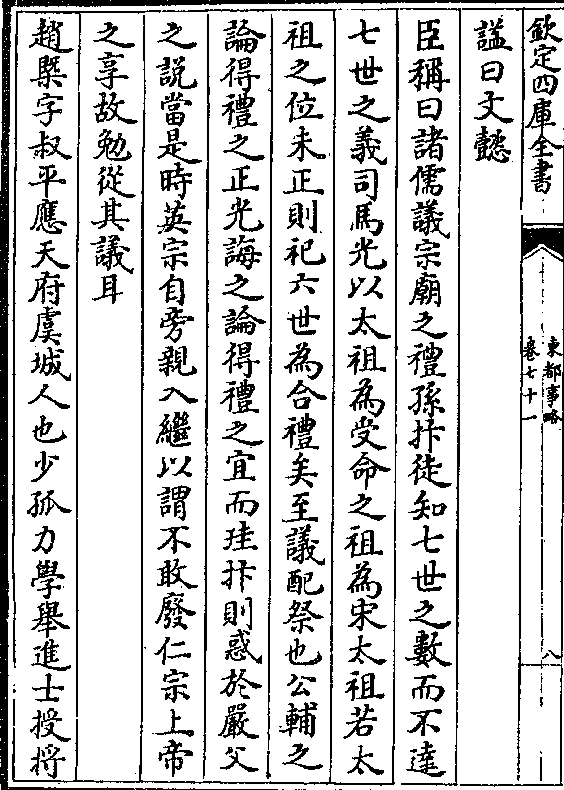 欽定四庫全書
東都事略
卷七十一
八
諡曰文懿
臣稱曰諸儒議宗廟之禮孫抃徒知七世之數而不達
七世之義司馬光以太祖為受命之祖為宋太祖若太
祖之位未正則祀六世為合禮矣至議配祭也公輔之
論得禮之正光誨之論得禮之宜而珪抃則惑於嚴父
之說當是時英宗自旁親入繼以謂不敢廢仁宗上帝
之享故勉從其議耳
趙槩字叔平應天府虞城人也少孤力學舉進士授將